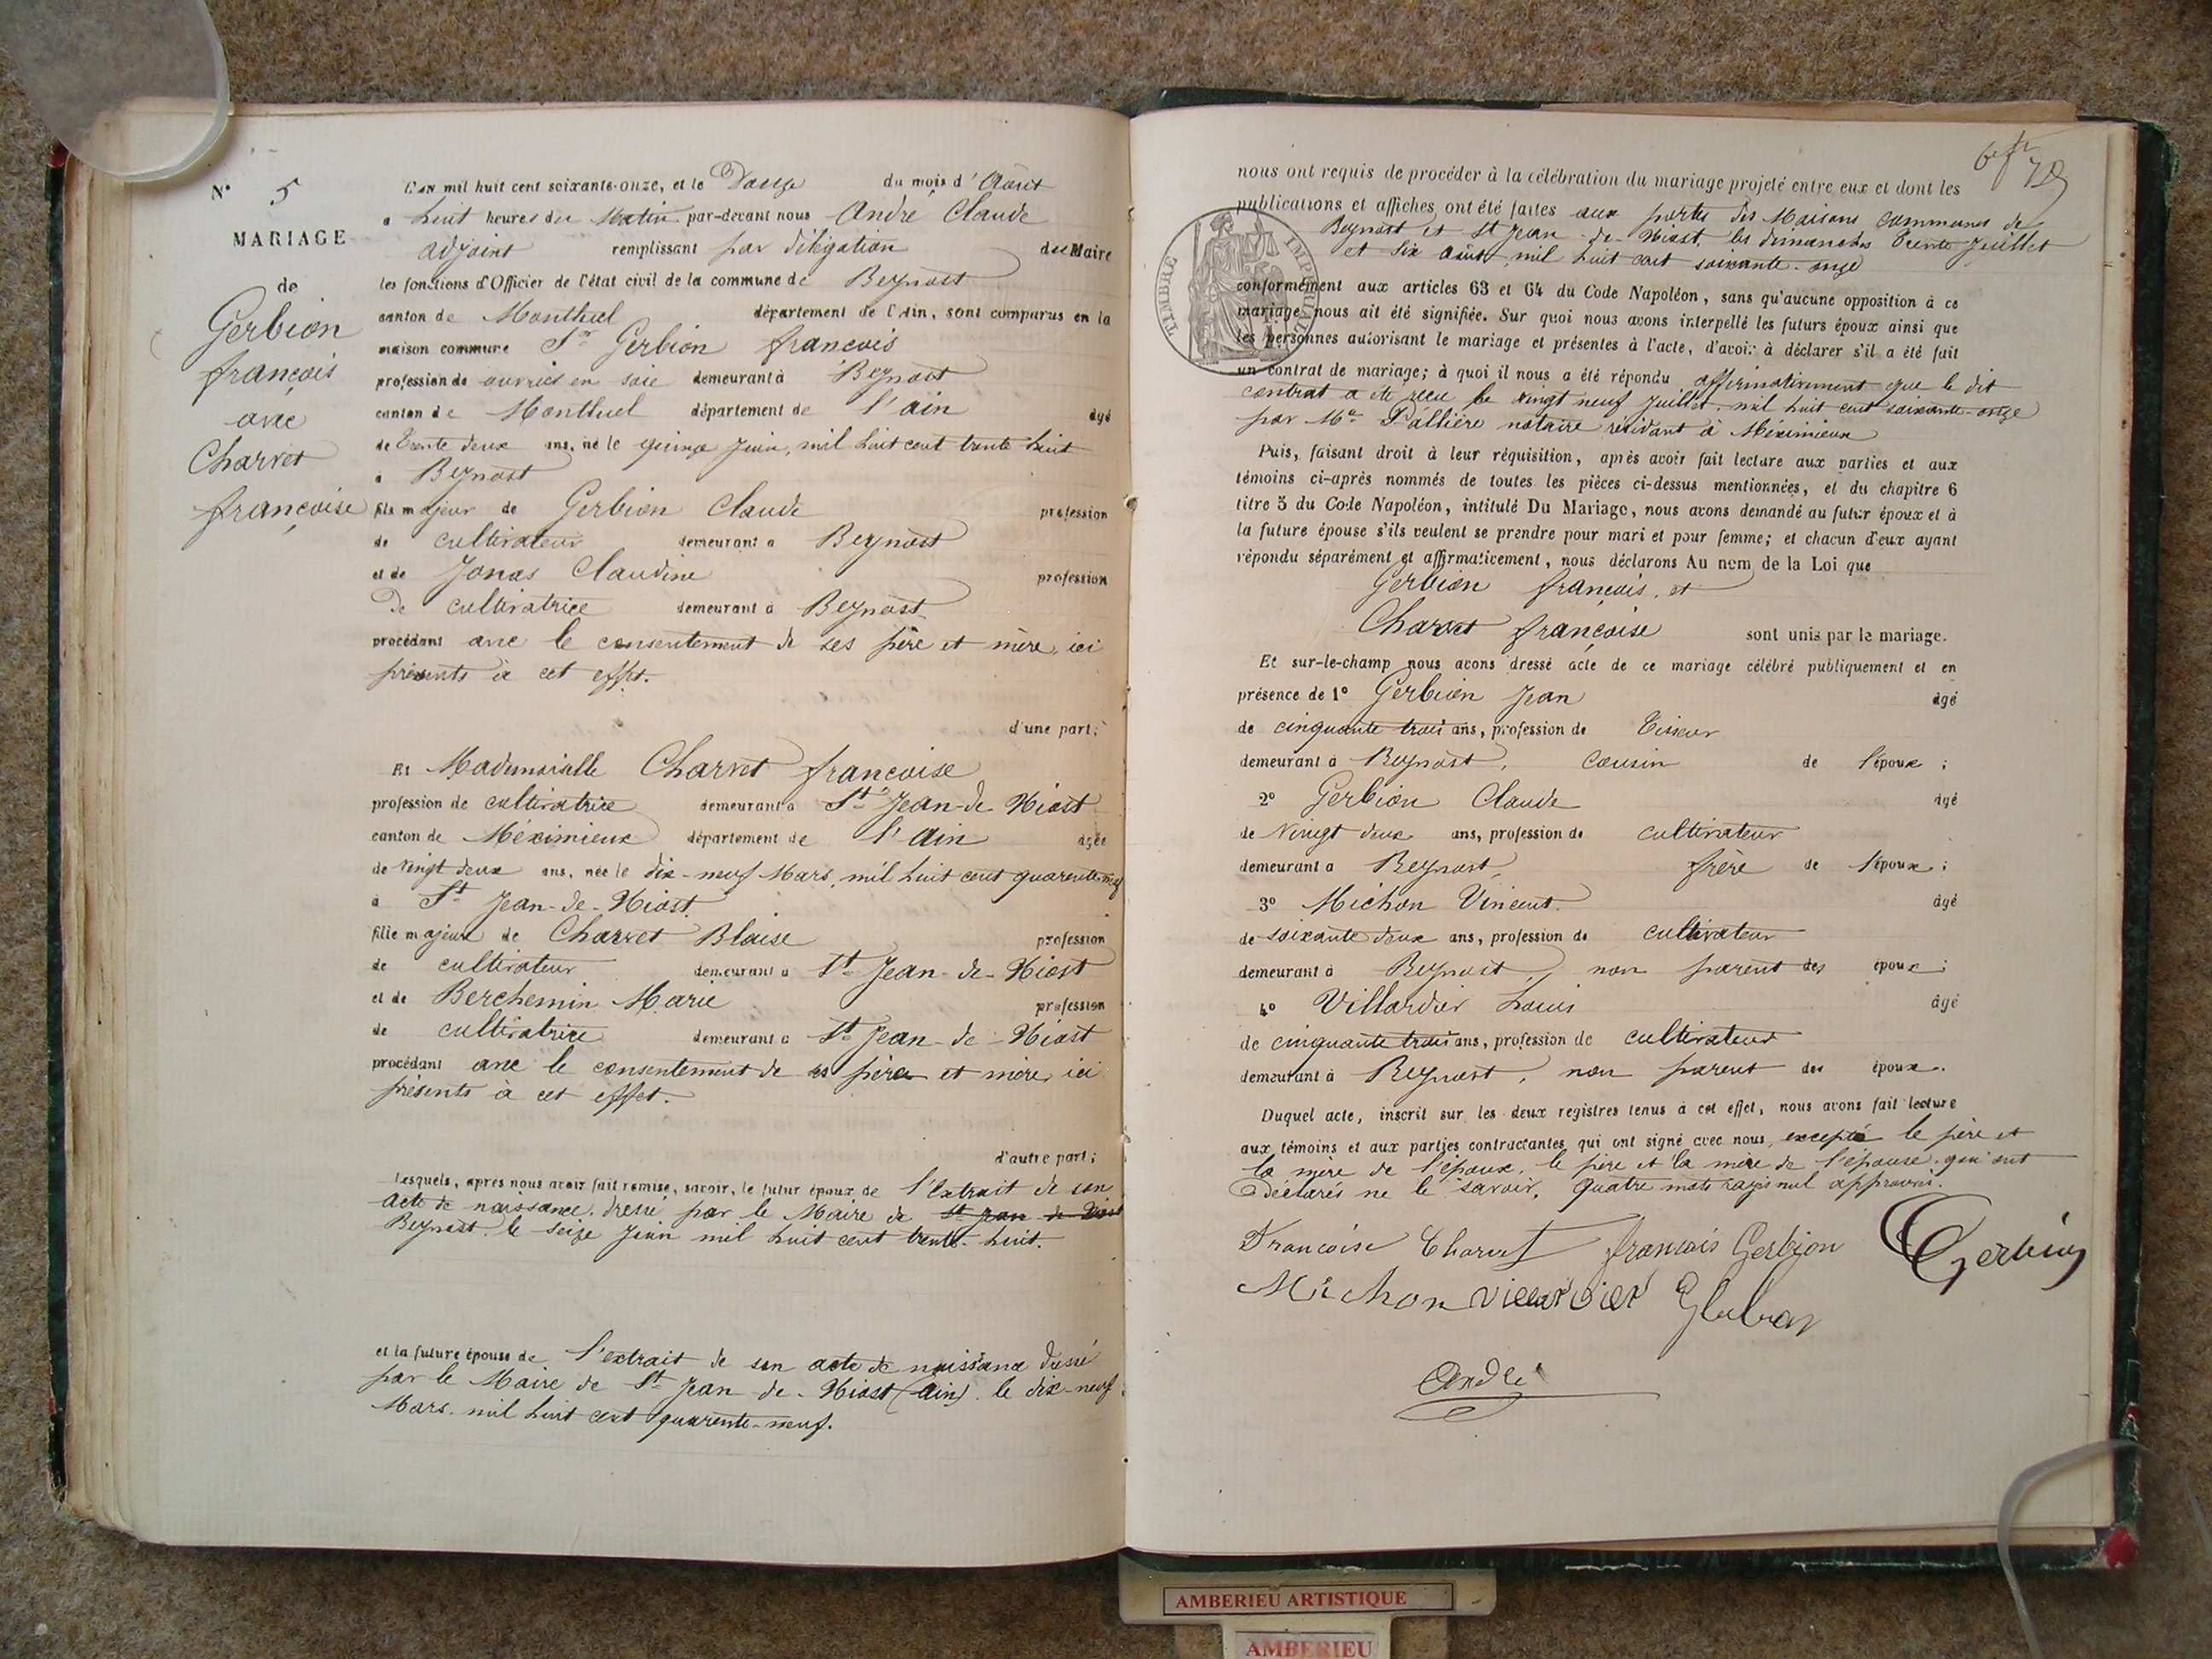 N° 5
MARIAGE
de
Gerbion
françois
avec
Charvet
françoise
L'an mil huit cent soixante-onze, et le Douze du mois d'Août
a huit heures du Matin par-devant nous André Claude
adjoint remplissant par délégation du Maire
les fonctions d'Officier de l'état civil de la commune de Beynost
canton de Montluel département de l'Ain, sont comparus en la
maison commune Sr Gerbion françois
profession de ouvrier en soie demeurant à Beynost
canton de Montluel département de l'ain âgé
de trente deux ans, né le quinze Juin, mil huit cent trente huit
a Beynost
fils majeur de Gerbion Claude profession
de cultivateur demeurant a Beynost
et de Jonas Claudine profession
De cultivatrice demeurant à Beynost
procédant avec le consentement de ses père et mère, ici
présents à cet effet.
d'une part;
Et Mademoiselle Charvet françoise
profession de cultivatrice demeurant a St Jean-de Niost
canton de Méximieux département de l'Ain agée
de vingt deux ans, née le dix-neuf Mars, mil huit cent quarente neuf
à St Jean-de-Niost
fille majeure de Charvet Blaise profession
de cultivateur demeurant a St Jean-de-Niost
et de Berchemin Marie profession
de cultivatrice demeurant a St Jean-de-Niost
procédant avec le consentement de ses père et mère, ici
présents à cet effet.
d'autre part;
Lesquels, après nous avoir fait remise, savoir, le futur époux de l'extrait de son
acte de naissance, dressé par le Maire de St Jean de Niost
Beynost, le seize Juin mil huit cent trente-huit.
et la future épouse de l'extrait de son acte de naissance dressé
par le Maire de St Jean-de-Niost (Ain), le dix-neuf
Mars, mil huit cent quarente-neuf.
nous ont requis de procéder à la célébration du mariage projeté entre eux et dont les
publications et affiches ont été faites aux portes des Maisons communes de
Beynost et St Jean-de-Niost, les dimanches trente Juillet
et six août mil huit cent soixante-onze
TIMBRE IMPERIAL
conformément aux articles 63 et 64 du Code Napoléon, sans qu'aucune opposition à ce
mariage nous ait été signifiée. Sur quoi nous avons interpellé les futurs époux ainsi que
les personnes autorisant le mariage et présentes à l'acte, d'avoir à déclarer s'il a été fait
un contrat de mariage; à quoi il nous a été répondu affirmativement que le dit
contrat a été reçu le vingt neuf Juillet, mil huit cent soixante-onze
par Me Pallière notaire résidant à Méximieux
Puis, faisant droit à leur réquisition, après avoir fait lecture aux parties et aux
témoins ci-après nommés de toutes les pièces ci-dessus mentionnées, et du chapitre 6
titre 5 du Code Napoléon, intitulé Du Mariage, nous avons demandé au futur époux et à
la future épouse s'ils veulent se prendre pour mari et pour femme; et chacun d'eux ayant
répondu séparément et affirmativement, nous déclarons Au nom de la Loi que
Gerbion françois, et
Charvet françoise sont unis par le mariage.
Et sur-le-champ nous avons dressé acte de ce mariage célébré publiquement et en
présence de 1° Gerbion Jean âgé
de cinquante trois ans, profession de Tisseur
demeurant à Beynost, Cousin de l'époux;
2° Gerbion Claude âgé
de vingt deux ans, profession de cultivateur
demeurant a Beynost, frère de l'époux;
3° Michon Vincent âgé
de soixante deux ans, profession de cultivateur
demeurant à Beynost, non parent des époux;
4° Villardier Louis âgé
de cinquante trois ans, profession de cultivateur
demeurant à Beynost, non parent des époux.
Duquel acte, inscrit sur les deux registres tenus à cet effet, nous avons fait lecture
aux témoins et aux parties contractantes, qui ont signé avec nous, excepté le père et
la mère de l'époux, le père et la mère de l'épouse qui ont
Déclarés ne le savoir, quatre mots rayés nul approuvés.
Francoise Charvet françois Gerbion Gerbion
Michon villardier
André
AMBERIEU ARTISTIQUE
AMBERIEU